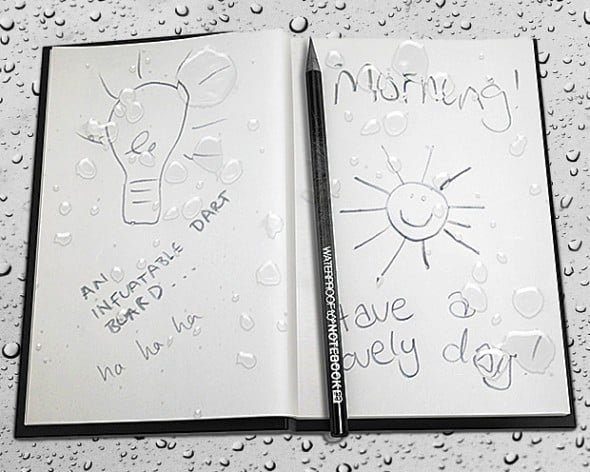 AN
INFLATABLE DART
BOARD....
ha ha ha
Morning!
Have a
lovely day!
WATERPROOF NOTEBOOK